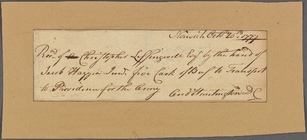 Norwich Octr 20th 1777
Recd of Christopher Leffingwell Esqr by the hand of
Jacob Harris Junr five Cask of Beef to Transport
to Providence for the Army
Andw Huntington